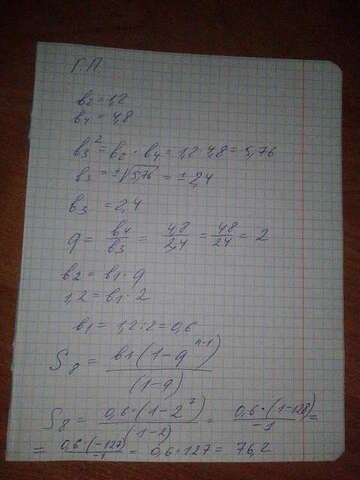 Г.П.
b₂=1,2
b₄=4,8
b₃²=b₂·b₄=1,2·4,8=5,76
b₃=±√5,76=±2,4
b₃=2,4
q=b₄/b₃=4,8/2,4=48/24=2
b₂=b₁·q
1,2=b₁·2
b₁=1,2:2=0,6
S₈=b₁(1-qⁿ⁻¹)/(1-q)
S₈=0,6·(1-2⁷)/(1-2)=0,6·(1-128)/-1=
=0,6·(-127)/-1=0,6·127=76,2